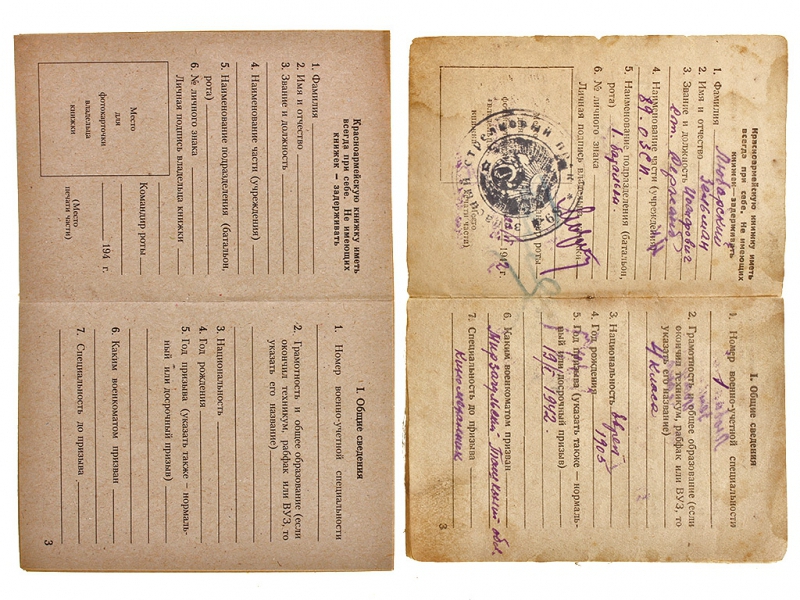 Красноармейскую книжку иметь
всегда при себе. Не имеющих
книжек — задерживать
1. Фамилия
2. Имя и отчество
3. Звание и должность
4. Наименование части (учреждения)
5. Наименование подразделения (батальон,
рота)
6. № личного знака
Личная подпись владельца книжки
Место
для
фотокарточки
владельца
книжки
Командир роты
194 г.
(Место
печати части)
I. Общие сведения
1. Номер военно-учетной специальности
2. Грамотность и общее образование (если
окончил техникум, рабфак или ВУЗ, то
указать его название)
3. Национальность
4. Год рождения
5. Год призыва (указать также – нормаль-
ный или досрочный призыв)
6. Каким военкоматом призван
7. Специальность до призыва
3
Красноармейскую книжку иметь
всегда при себе. Не имеющих
книжек—задерживать
1. Фамилия
2. Имя и отчество
3. Звание и должность
ст. сержант
4. Наименование части (учреждения)
89. ОЗСП.
5. Наименование подразделения (батальон,
рота)
6. № личного знака
Личная подпись
роты
печати части)
I. Общие сведения
1. Номер военно-учетной специальности
2. Грамотность и общее образование (если
окончил техникум, рабфак или ВУЗ, то
указать его название)
4 класса
3. Национальность еврей
4. Год рождения 1903
5. Год призыва (указать также – нормаль-
ный или досрочный призыв)
1942.
6. Каким военкоматом призван
Мирзачульский
обл.
7. Специальность до призыва
Киномеханик
3